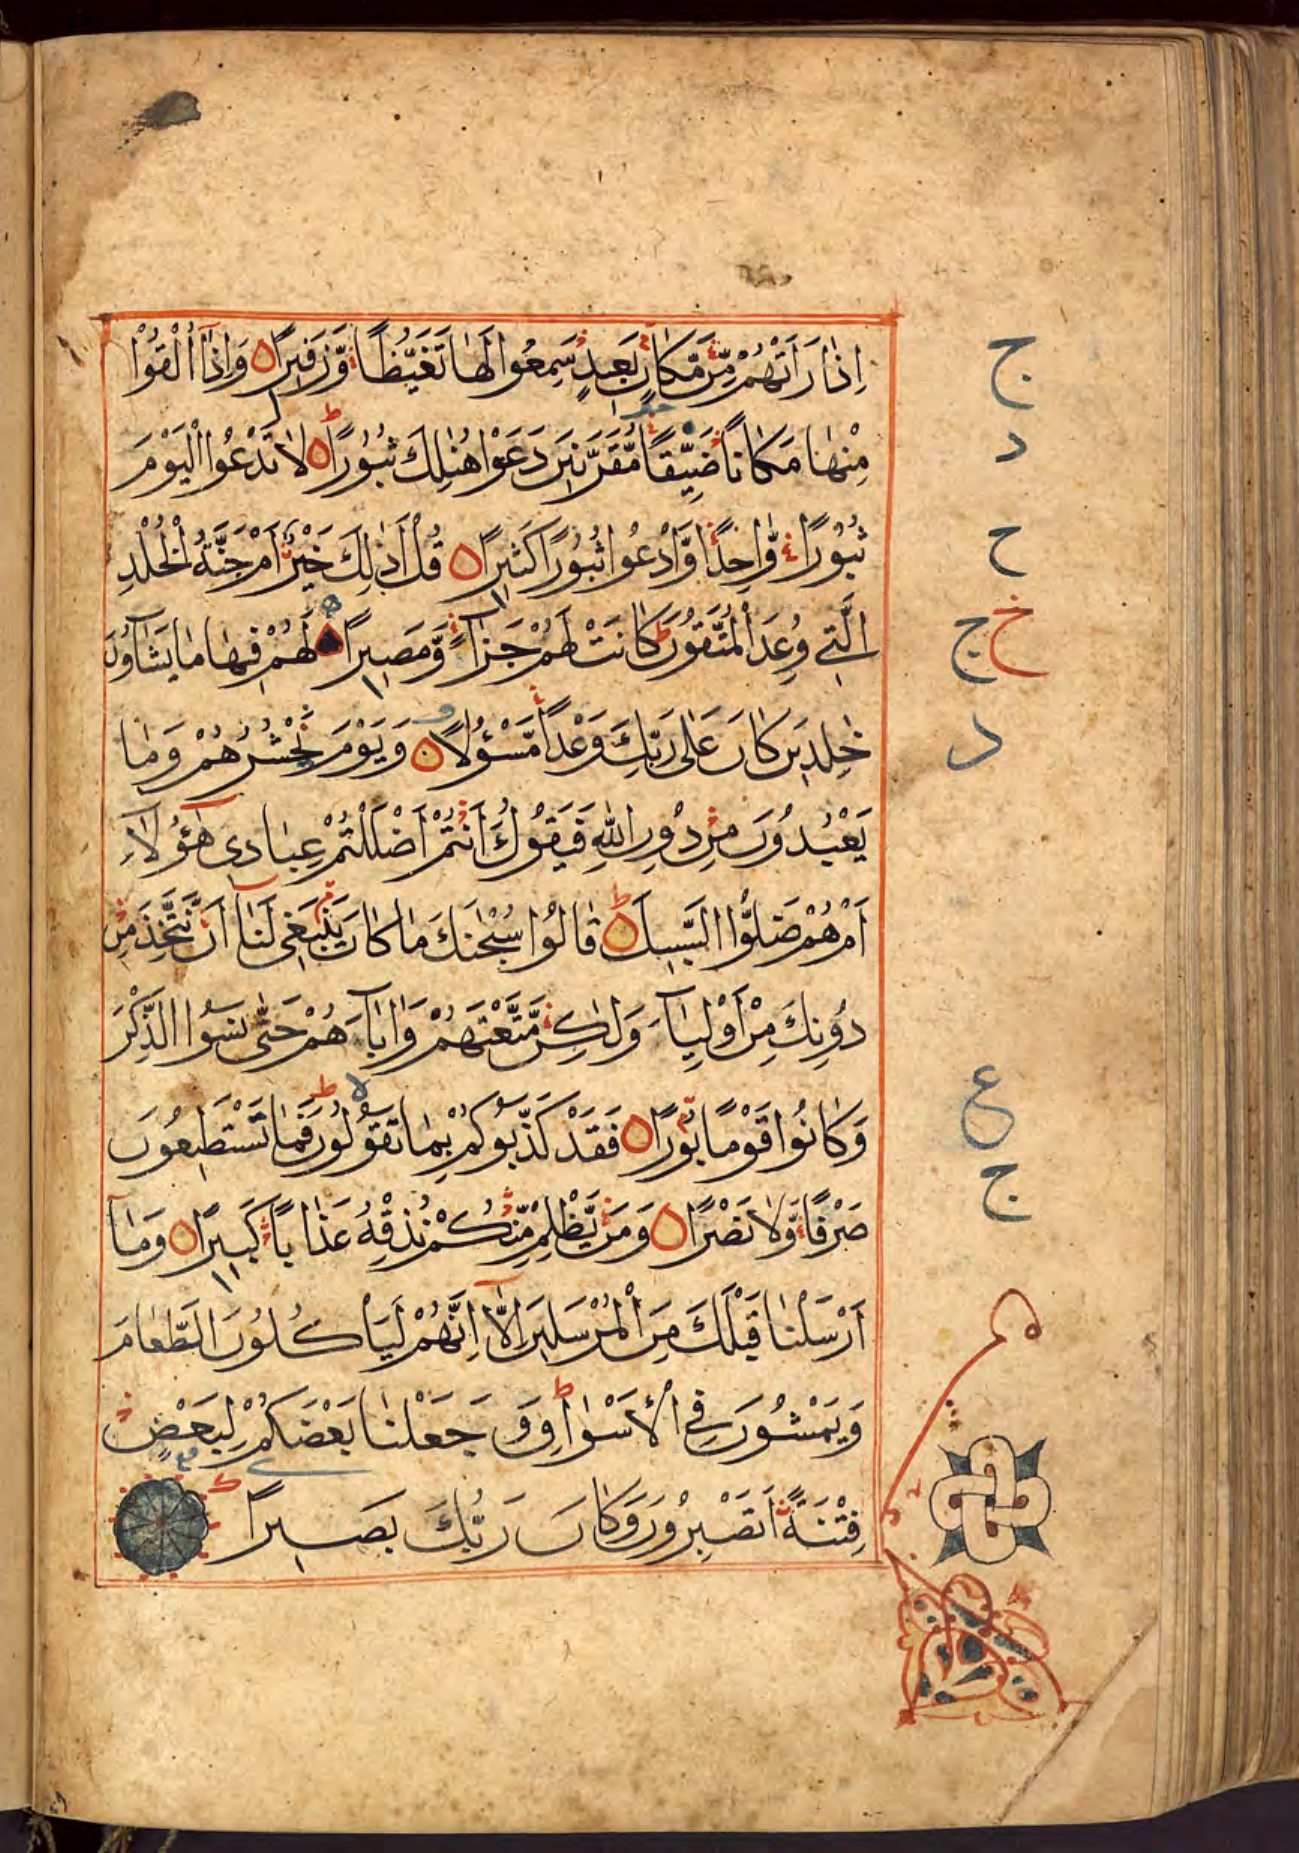 اِذَا رَاَتْهُمْ مِّنْ مَّكَانٍ بَعِيدٍ سَمِعُوا لَهَا تَغَيُّظًا وَّزَفِيرًا وَاِذَآ اُلْقُوْا
مِنْهَا مَكَانًا ضَيِّقًا مُّقَرَّنِينَ دَعَوْا هُنٰلِكَ ثُبُوْرًا لَا تَدْعُوا الْيَوْمَ
ثُبُوْرًا وَّاحِدًا وَّادْعُوا ثُبُوْرًا كَثِيرًا قُلْ اَذٰلِكَ خَيْرٌ اَمْ جَنَّةُ الْخُلْدِ
الَّتِي وُعِدَ الْمُتَّقُوْنَ كَانَتْ لَهُمْ جَزَآءً وَّمَصِيرًا لَهُمْ فِيهَا مَا يَشَآؤُنَ
خٰلِدِينَ كَانَ عَلٰى رَبِّكَ وَعْدًا مَّسْؤُلًا وَيَوْمَ نَحْشُرُهُمْ وَمَا
يَعْبُدُوْنَ مِنْ دُوْنِ اللّٰهِ فَيَقُوْلُ ءَاَنْتُمْ اَضْلَلْتُمْ عِبَادِى هٰٓؤُلَاءِ
اَمْ هُمْ ضَلُّوا السَّبِيلَ قَالُوْا سُبْحٰنَكَ مَا كَانَ يَنْبَغِى لَنَآ اَنْ نَّتَّخِذَ مِنْ
دُوْنِكَ مِنْ اَوْلِيَآءَ وَلٰكِنْ مَّتَّعْتَهُمْ وَاٰبَآءَهُمْ حَتّٰى نَسُوا الذِّكْرَ
وَكَانُوْا قَوْمًا بُوْرًا فَقَدْ كَذَّبُوْكُمْ بِمَا تَقُوْلُوْنَ فَمَا تَسْتَطِيعُوْنَ
صَرْفًا وَّلَا نَصْرًا وَمَنْ يَّظْلِمْ مِّنْكُمْ نُذِقْهُ عَذَابًا كَبِيرًا وَمَآ
اَرْسَلْنَا قَبْلَكَ مِنَ الْمُرْسَلِينَ اِلَّآ اِنَّهُمْ لَيَاْكُلُوْنَ الطَّعَامَ
وَيَمْشُوْنَ فِي الْاَسْوَاقِ وَجَعَلْنَا بَعْضَكُمْ لِبَعْضٍ
فِتْنَةً اَتَصْبِرُوْنَ وَكَانَ رَبُّكَ بَصِيرًا
ج
د
ح
خ ج
د
ع
ج